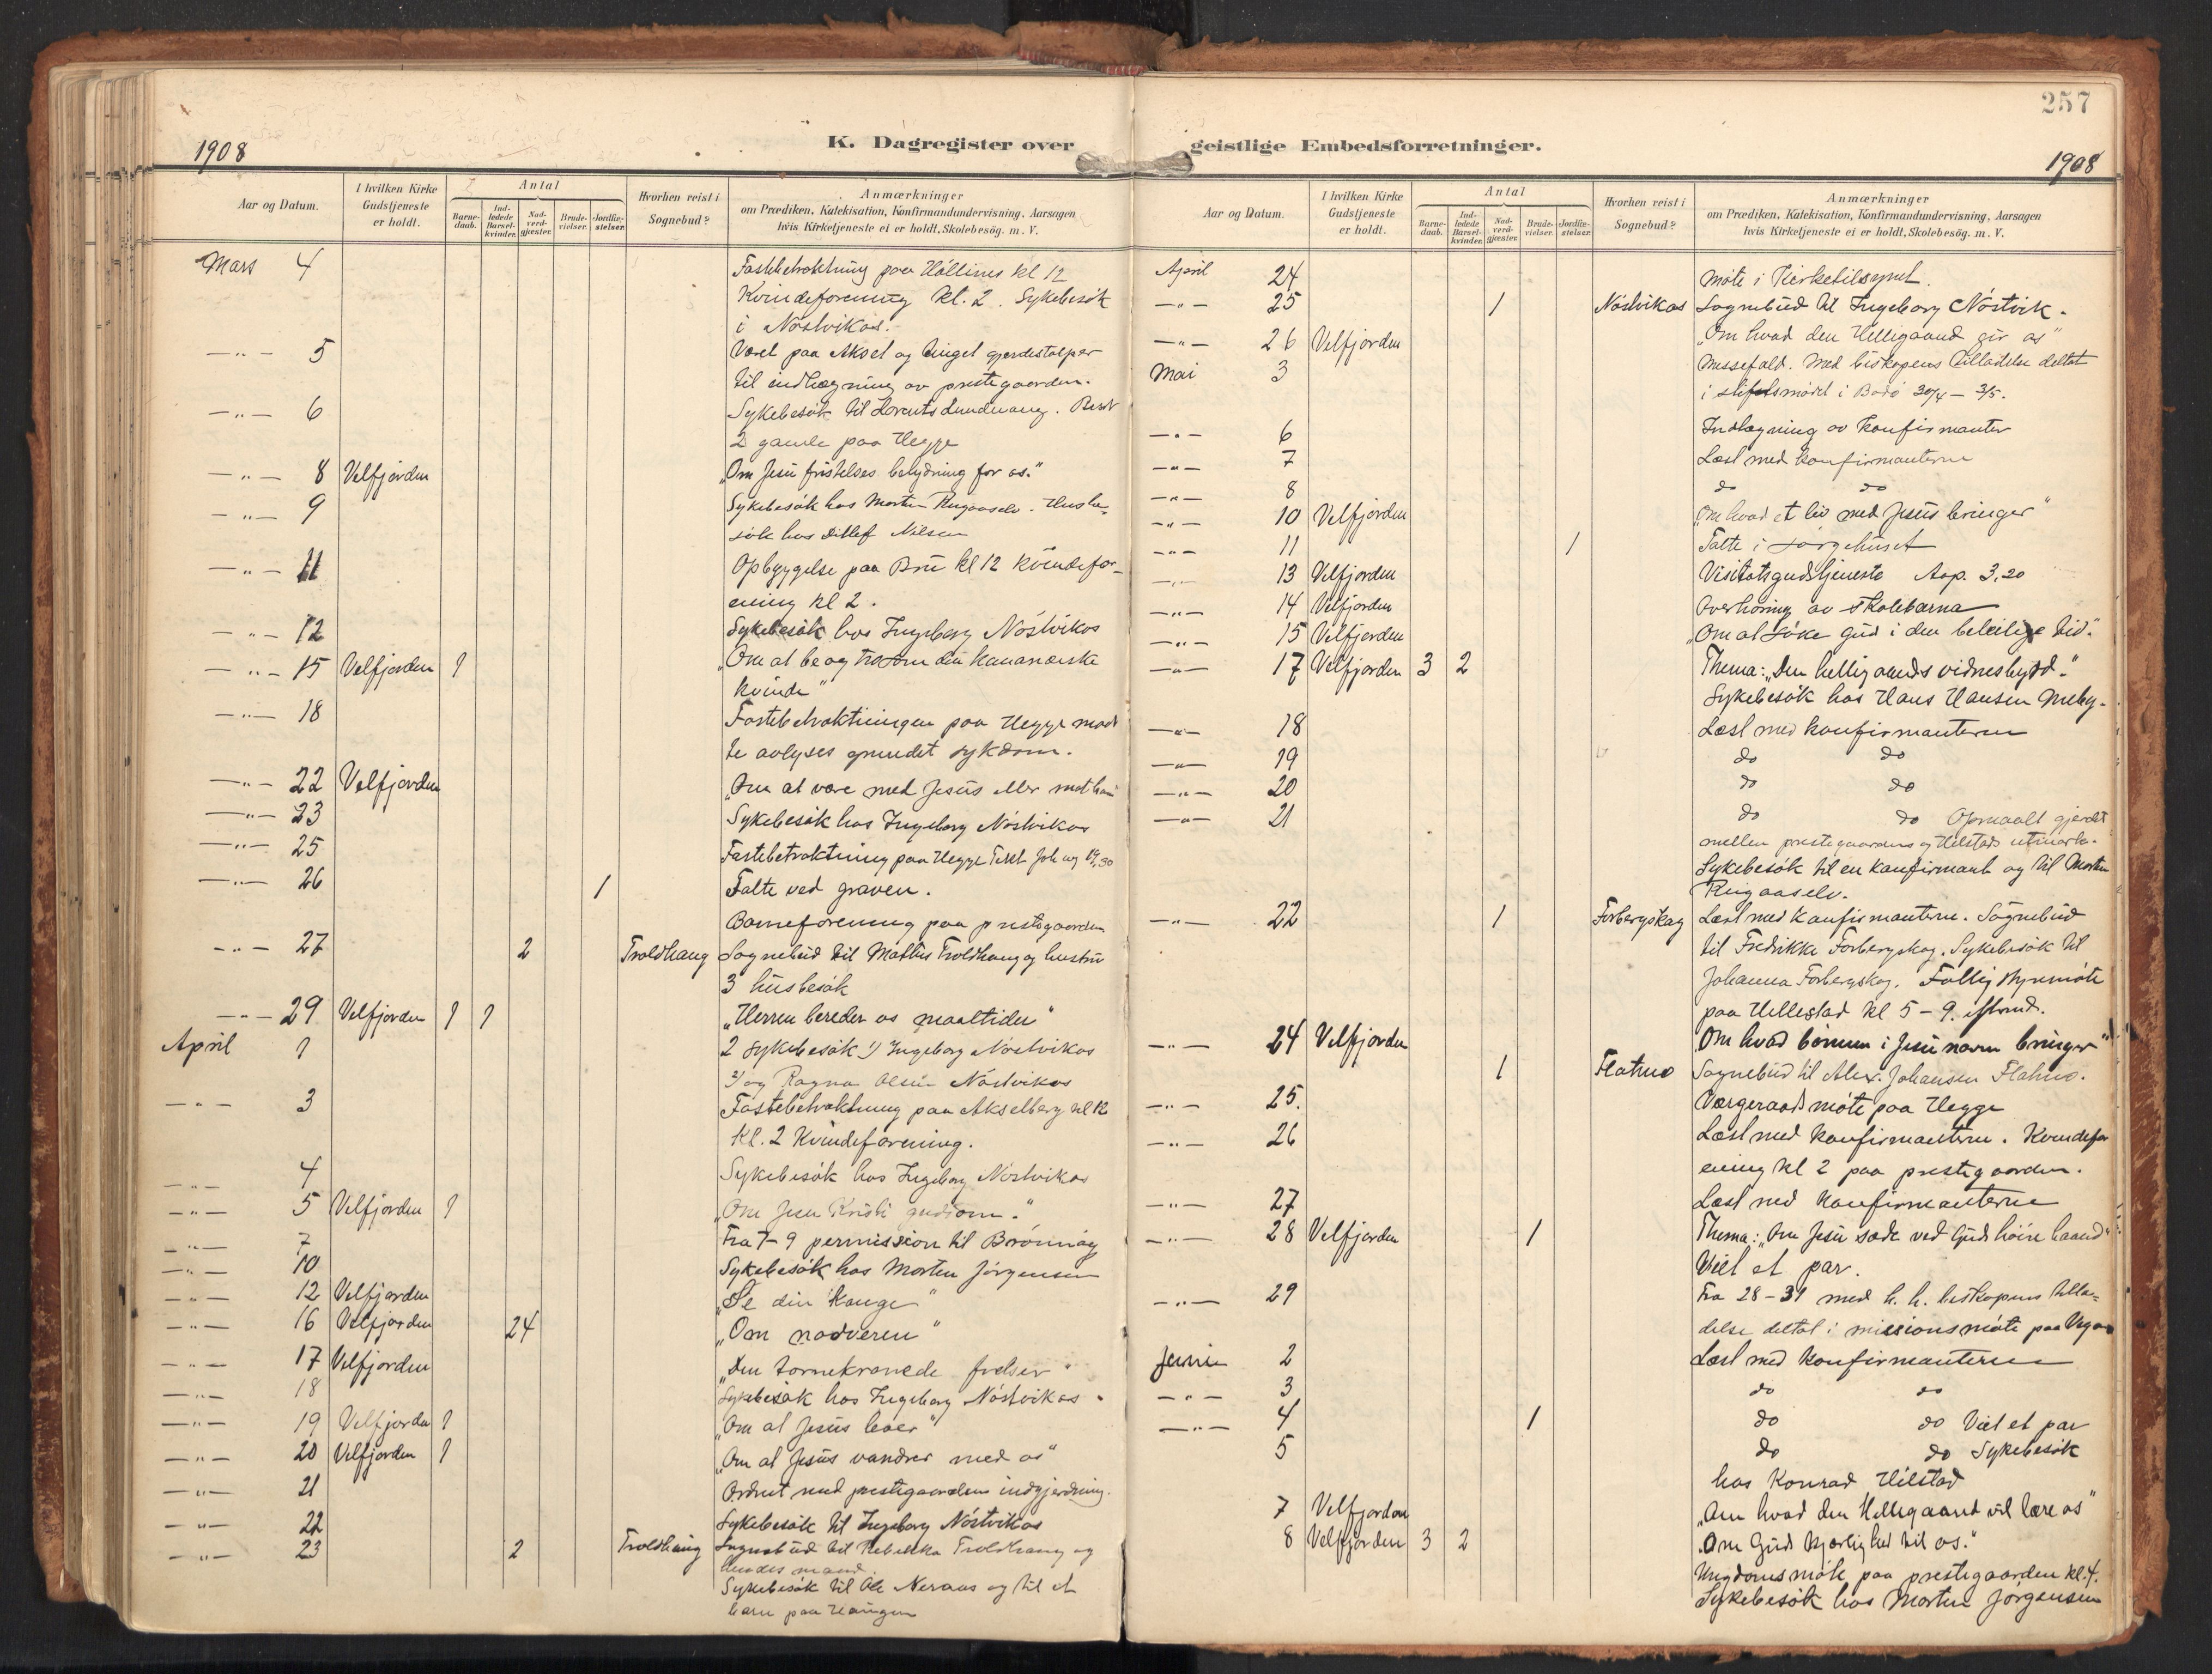 257
1908
K. Dagregister over
Aar og Datum.
I hvilken Kirke Gudstjeneste er holdt.
Antal
Barne-daab.
Ind-ledede Barsel-kvinder.
Nad-verd-gjæster.
Brude-vielser.
Jordfæ-stelser.
Hvorhen reist i Sognebud?
Anmærkninger
om Prædiken, Katekisation, Konfirmandundervisning, Aarsagen
hvis Kirketjeneste ei er holdt, Skolebesøg. m. V.
Mars 4 Fastebetraktning paa Hóllines kl 12
Kvindeforening kl. 2. Sykebesök
i Nóstvikas.
—"— 5 Været paa Aksel og
til indhegning av prestegaarden.
—"— 6 Sykebesök til Lorents
2 gamle paa Hegge
—"— 8 Velfjorden „Om Jesu fristelses betydning for os."
—"— 9 Sykebesök hos Morten Ringaaselv. Husbe-
sök hos Ditlef Nilsen
—"— 11 Opbyggelse paa Brú kl 12 Kvindefor-
ening kl 2.
—"— 12 Sykebesök hos Ingeborg Nóstvikas
—"— 15 Velfjorden 1 „Om at be og tro som den kananæiske
kvinde"
—"— 18 Fastebetraktningen paa Hegge maat
te avlyses grundet sykdom.
—"— 22 Velfjorden „Om at være med Jesus eller mot ham"
—"— 23 Sykebesök hos Ingeborg Nóstvikas
—"— 25 Fastebetraktning paa Hegge Tekst Joh ev 19,30
—"— 26 1 Talte ved graven.
Barneforening paa prestegaarden
—"— 27 2 Troldhaug Sognebud til Mathis Troldhaug og hustru
3 húsbesök
—"— 29 Velfjorden 1 1 „Herren bereder os maaltider"
April 1 2 Sykebesök 1) Ingeborg Nóstvikas
2) og Ragna Olsen Nóstvikas
—"— 3 Fastebetraktning paa Akselberg kl 12
Kl. 2 Kvindeforening.
—"— 4 Sykebesök hos Ingeborg Nóstvikas
—"— 5 Velfjorden 1 „Om Jesu Kristi gudsom."
—"— 7 Fra 7–9 permission til Brönnöy
—"— 10 Sykebesök hos Morten Jörgensen
—"— 12 Velfjorden „Se din konge"
—"— 16 Velfjorden 24 „Om nadveren"
—"— 17 Velfjorden „Den tornekronede frelser"
—"— 18 Sykebesök hos Ingeborg Nóstvikas.
—"— 19 Velfjorden 1 „Om at Jesus lever"
—"— 20 Velfjorden 1 „Om at Jesus vandrer med os"
—"— 21 Ordnet med prestegaardens indgjerdning.
—"— 22 Sykebesök til Ingeborg Nóstvikas
—"— 23 2 Troldhaug Sognebud til Rebekka Troldhaug og
hendes mand.
Sykebesök til Ole Neraas og til et
barn paa Haugen
1908
geistlige Embedsforretninger.
Aar og Datum.
I hvilken Kirke Gudstjeneste er holdt.
Antal
Barne-daab.
Ind-ledede Barsel-kvinder.
Nad-verd-gjæster.
Brude-vielser.
Jordfæ-stelser.
Hvorhen reist i Sognebud?
Anmærkninger
om Prædiken, Katekisation, Konfirmandundervisning, Aarsagen
hvis Kirketjeneste ei er holdt, Skolebesøg. m. V.
April 24 Möte i Kirketilsynet.
—"— 25 1 Nóstvikas Sognebud til Ingeborg Nóstvik.
—"— 26 Velfjorden „Om hvad den Helligaand gir os"
Mai 3 Messefald. Med biskopens tilladelse deltat
i stiftsmötet i Bodö 30/4 – 3/5.
—"— 6 Indlegning av konfirmanter
—"— 7 Læst med konfirmanterne
—"— 8 do do
—"— 10 Velfjorden „Om hvad et liv med Jesus bringer"
—"— 11 1 Talte i sörgehuset
—"— 13 Velfjorden Visitatsgudstjeneste Aap. 3,20
—"— 14 Velfjorden Overhöring av skolebarna
—"— 15 Velfjorden „Om at söke Gud i den beleilige tid."
—"— 17 Velfjorden 3 2 Thema: „Den hellig aands vidnesbyrd."
Sykebesök hos Hans Hansen Meby.
—"— 18 Læst med konfirmanterne
—"— 19 do do
—"— 20 do do
—"— 21 do do Opmaalt gjerdet
mellem prestegaardens og Hilstads utmark.
Sykebesök til en konfirmant og til Morten
Ringaaselv.
—"— 22 1 Forbergskog Læst med konfirmanterne. Sognebud
til Fredrikke Forbergskog. Sykebesök til
Johanna Forbergskog. Fattigstyremöte
paa Hillestad kl 5 – 9. eftmd.
—"— 24 Velfjorden „Om hvad bönnen i Jesu navn bringer"
1 Flatmo Sognebud til Alex. Johansen Flatmo.
—"— 25. Værgeraadsmöte paa Hegge
—"— 26 Læst med konfirmanterne. Kvindefor
ening kl 2 paa prestegaarden.
—"— 27 Læst med konfirmanterne
—"— 28 Velfjorden 1 Thema: „Om Jesu sæde ved Guds höire haand"
Viet et par.
—"— 29 Fra 28–31 med h. h. biskopens tilla-
delse deltat i missionsmöte paa Vega
Juni 2 Læst med konfirmanterne
—"— 3 do do
—"— 4 1 do do Viet et par
5 do do Sykebesök
hos Konrad Hilstad
7 Velfjorden „Om hvad den Helligaand vil lære os"
8 Velfjorden 3 2 „Om Guds kjærlighed til os."
Ungdomsmöte paa prestegaarden kl. 4.
Sykebesök hos Morten Jörgensen